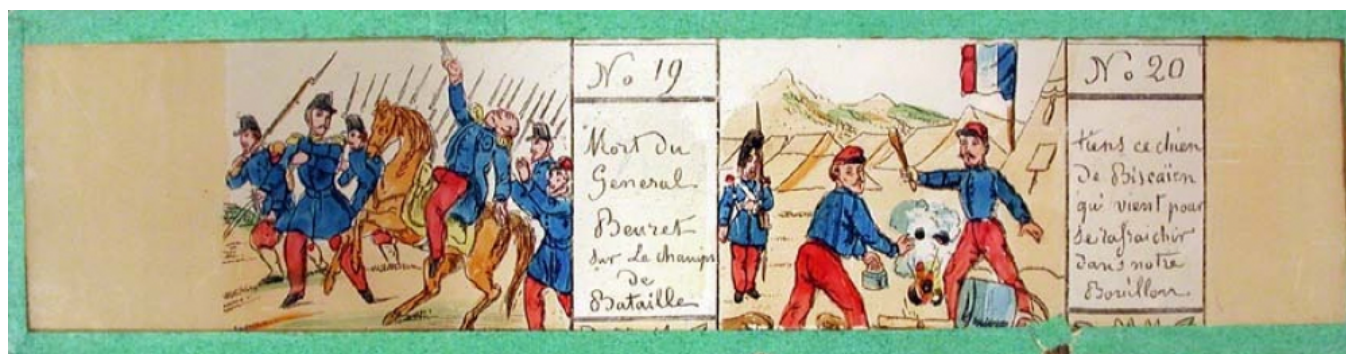 No 19
Mort du
General
Beuret
sur le champs
de
Bataille
No 20
tiens ce chien
de Biscaïen
qu' vient pour
se rafraichir
dans notre
Bouillon